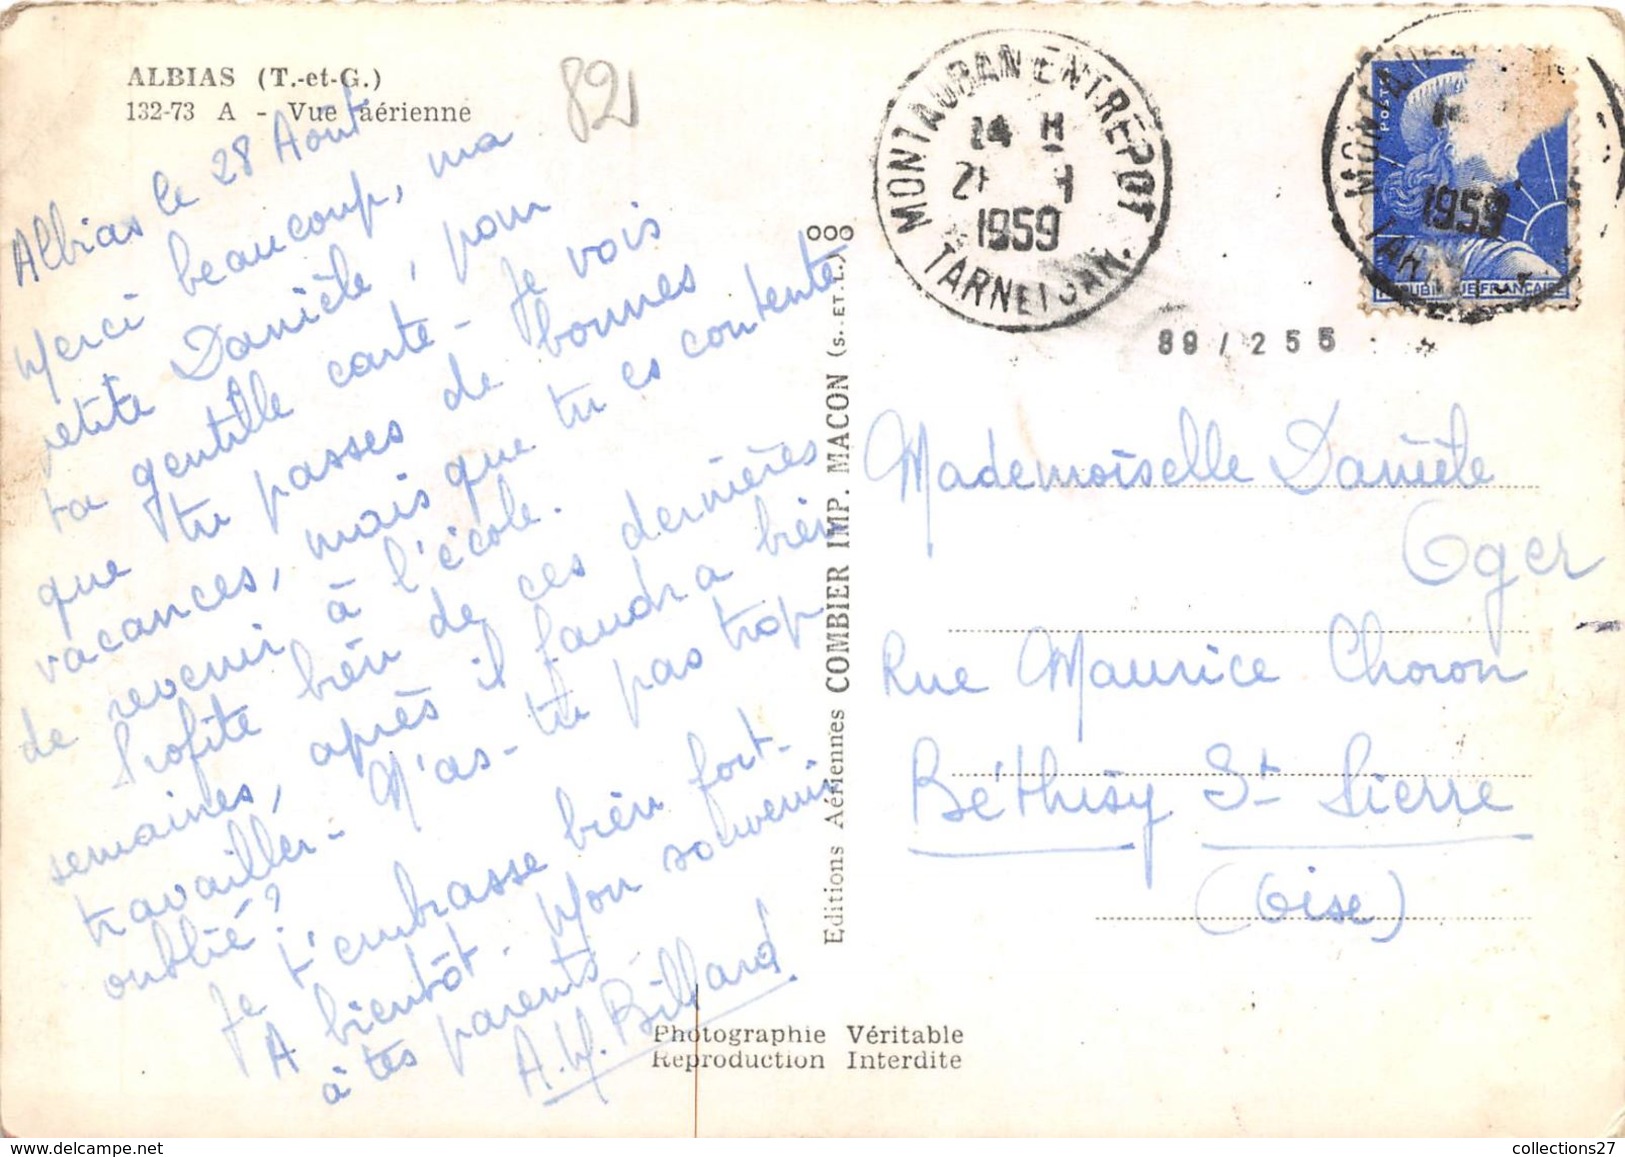 ALBIAS (T.-et-G.)
132-73 A - Vue aérienne
82
Albias le 28 Aout
Merci beaucoup, ma
petite Danièle, pour
ta gentille carte - Je vois
que tu passes de bonnes
vacances, mais que tu es contente
de revenir à l'école.
Profite bien de ces dernières
semaines, après il faudra bien
travailler - N'as-tu pas trop
oublié ?
Je t'embrasse bien fort -
A bientôt - Mon souvenir
à tes parents
A.M. Billard.
Editions Aériennes COMBIER IMP. MACON (S. ET L.)
MONTAUBAN ENTREPOT
1959
TARN ET GAR.
1959
POSTES
REPUBLIQUE FRANÇAISE
89/255
Mademoiselle Danièle
Oger
Rue Maurice Choron
Béthisy St Pierre
(Oise)
Photographie Véritable
Reproduction Interdite
collections27